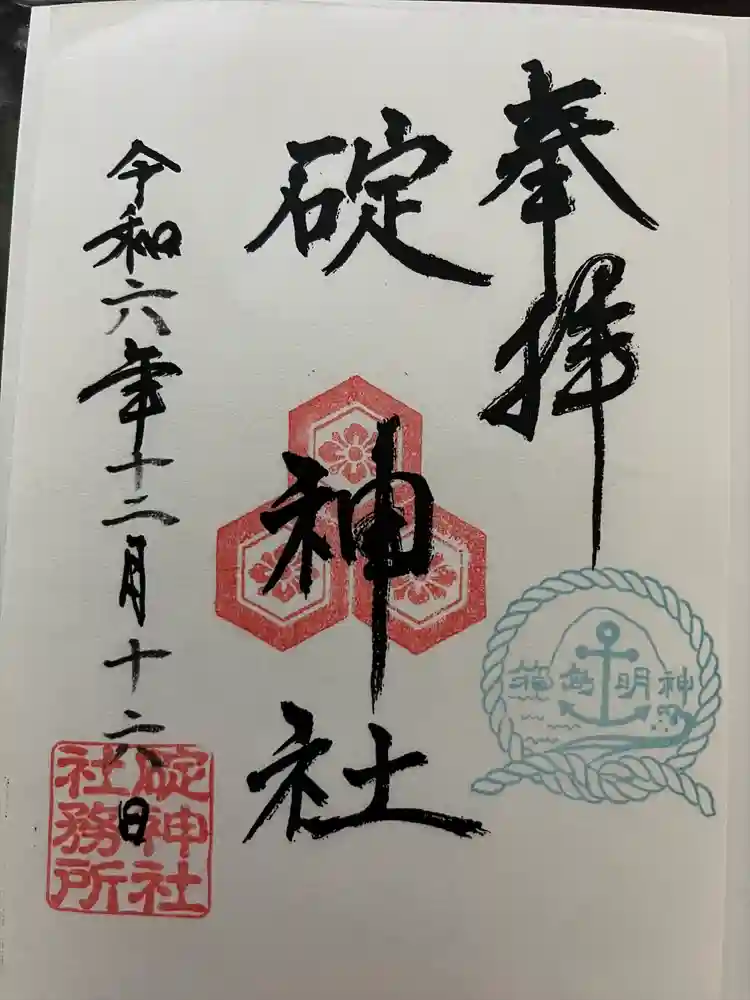 奉拝
碇神社
令和六年十二月十六日
碇神社
社務所